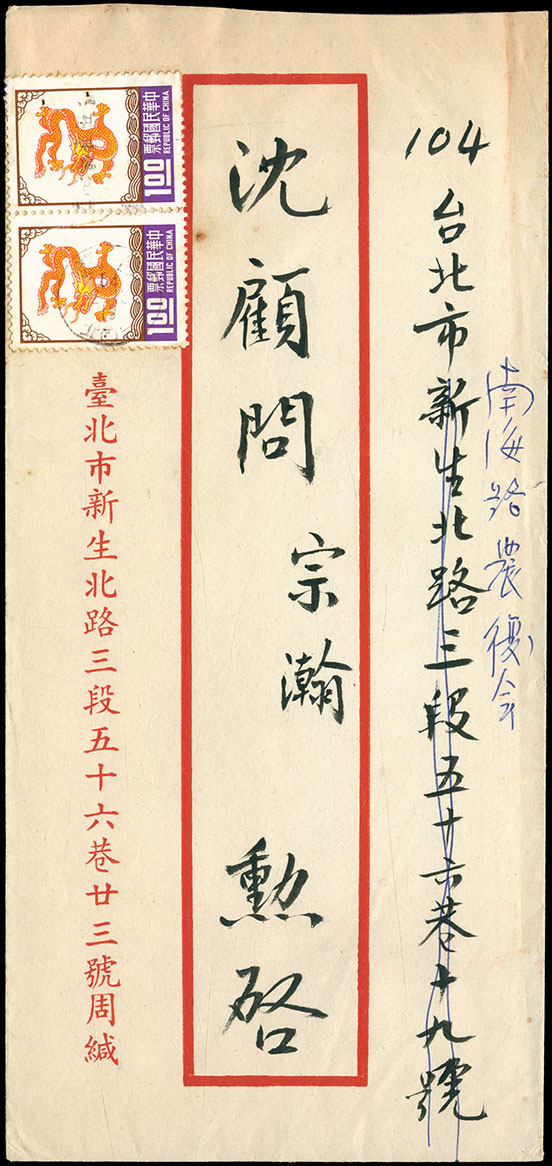 104
台北市新生北路三段五十六巷十九號
南海路農復会
沈顧問宗瀚勳啓
中華民國郵票
REPUBLIC OF CHINA
1.00
中華民國郵票
REPUBLIC OF CHINA
1.00
臺北市新生北路三段五十六巷廿三號周緘